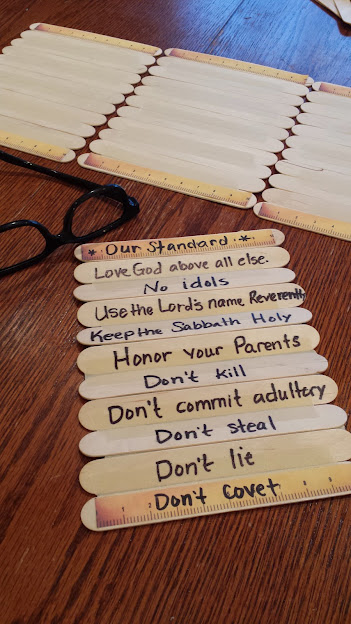 * Our Standard *
Love God above all else.
No idols
Use the Lord's name Reverently
Keep the Sabbath Holy
Honor your Parents
Don't kill
Don't commit adultery
Don't steal
Don't lie
Don't Covet